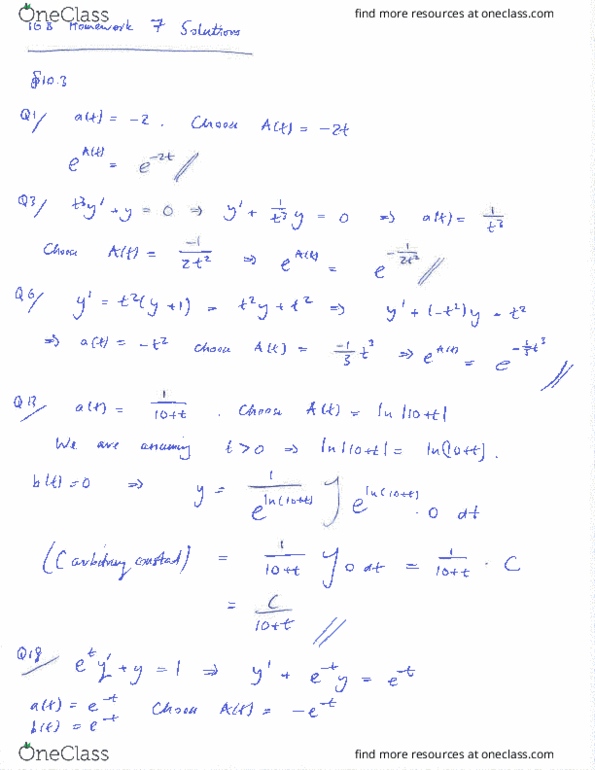 OneClass
find more resources at oneclass.com
16B Homework 7 Solutions
§10.3
Q1/ a(t) = -2 . Choose A(t) = -2t
e^A(t) = e^-2t //
Q3/ t³y' + y = 0 ⇒ y' + 1/t³ y = 0 ⇒ a(t) = 1/t³
Choose A(t) = -1/2t² ⇒ e^A(t) = e^-1/2t² //
Q6/ y' = t²(y+1) = t²y + t² ⇒ y' + (-t²)y = t²
⇒ a(t) = -t² choose A(t) = -1/3 t³ ⇒ e^A(t) = e^-1/3t³ //
a(t) = 1/10+t . Choose A(t) = ln|10+t|
We are assuming t > 0 ⇒ ln|10+t| = ln(10+t).
b(t) = 0 ⇒ y = 1/e^ln(10+t) ∫ e^ln(10+t) · 0 dt
(C arbitrary constant) = 1/10+t ∫ 0 dt = 1/10+t · C
= C/10+t //
Q18/ e^t y' + y = 1 ⇒ y' + e^-t y = e^-t
a(t) = e^-t Choose A(t) = -e^-t
b(t) = e^-t
OneClass
find more resources at oneclass.com